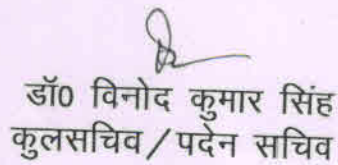 डॉ0 विनोद कुमार सिंह
कुलसचिव / पदेन सचिव